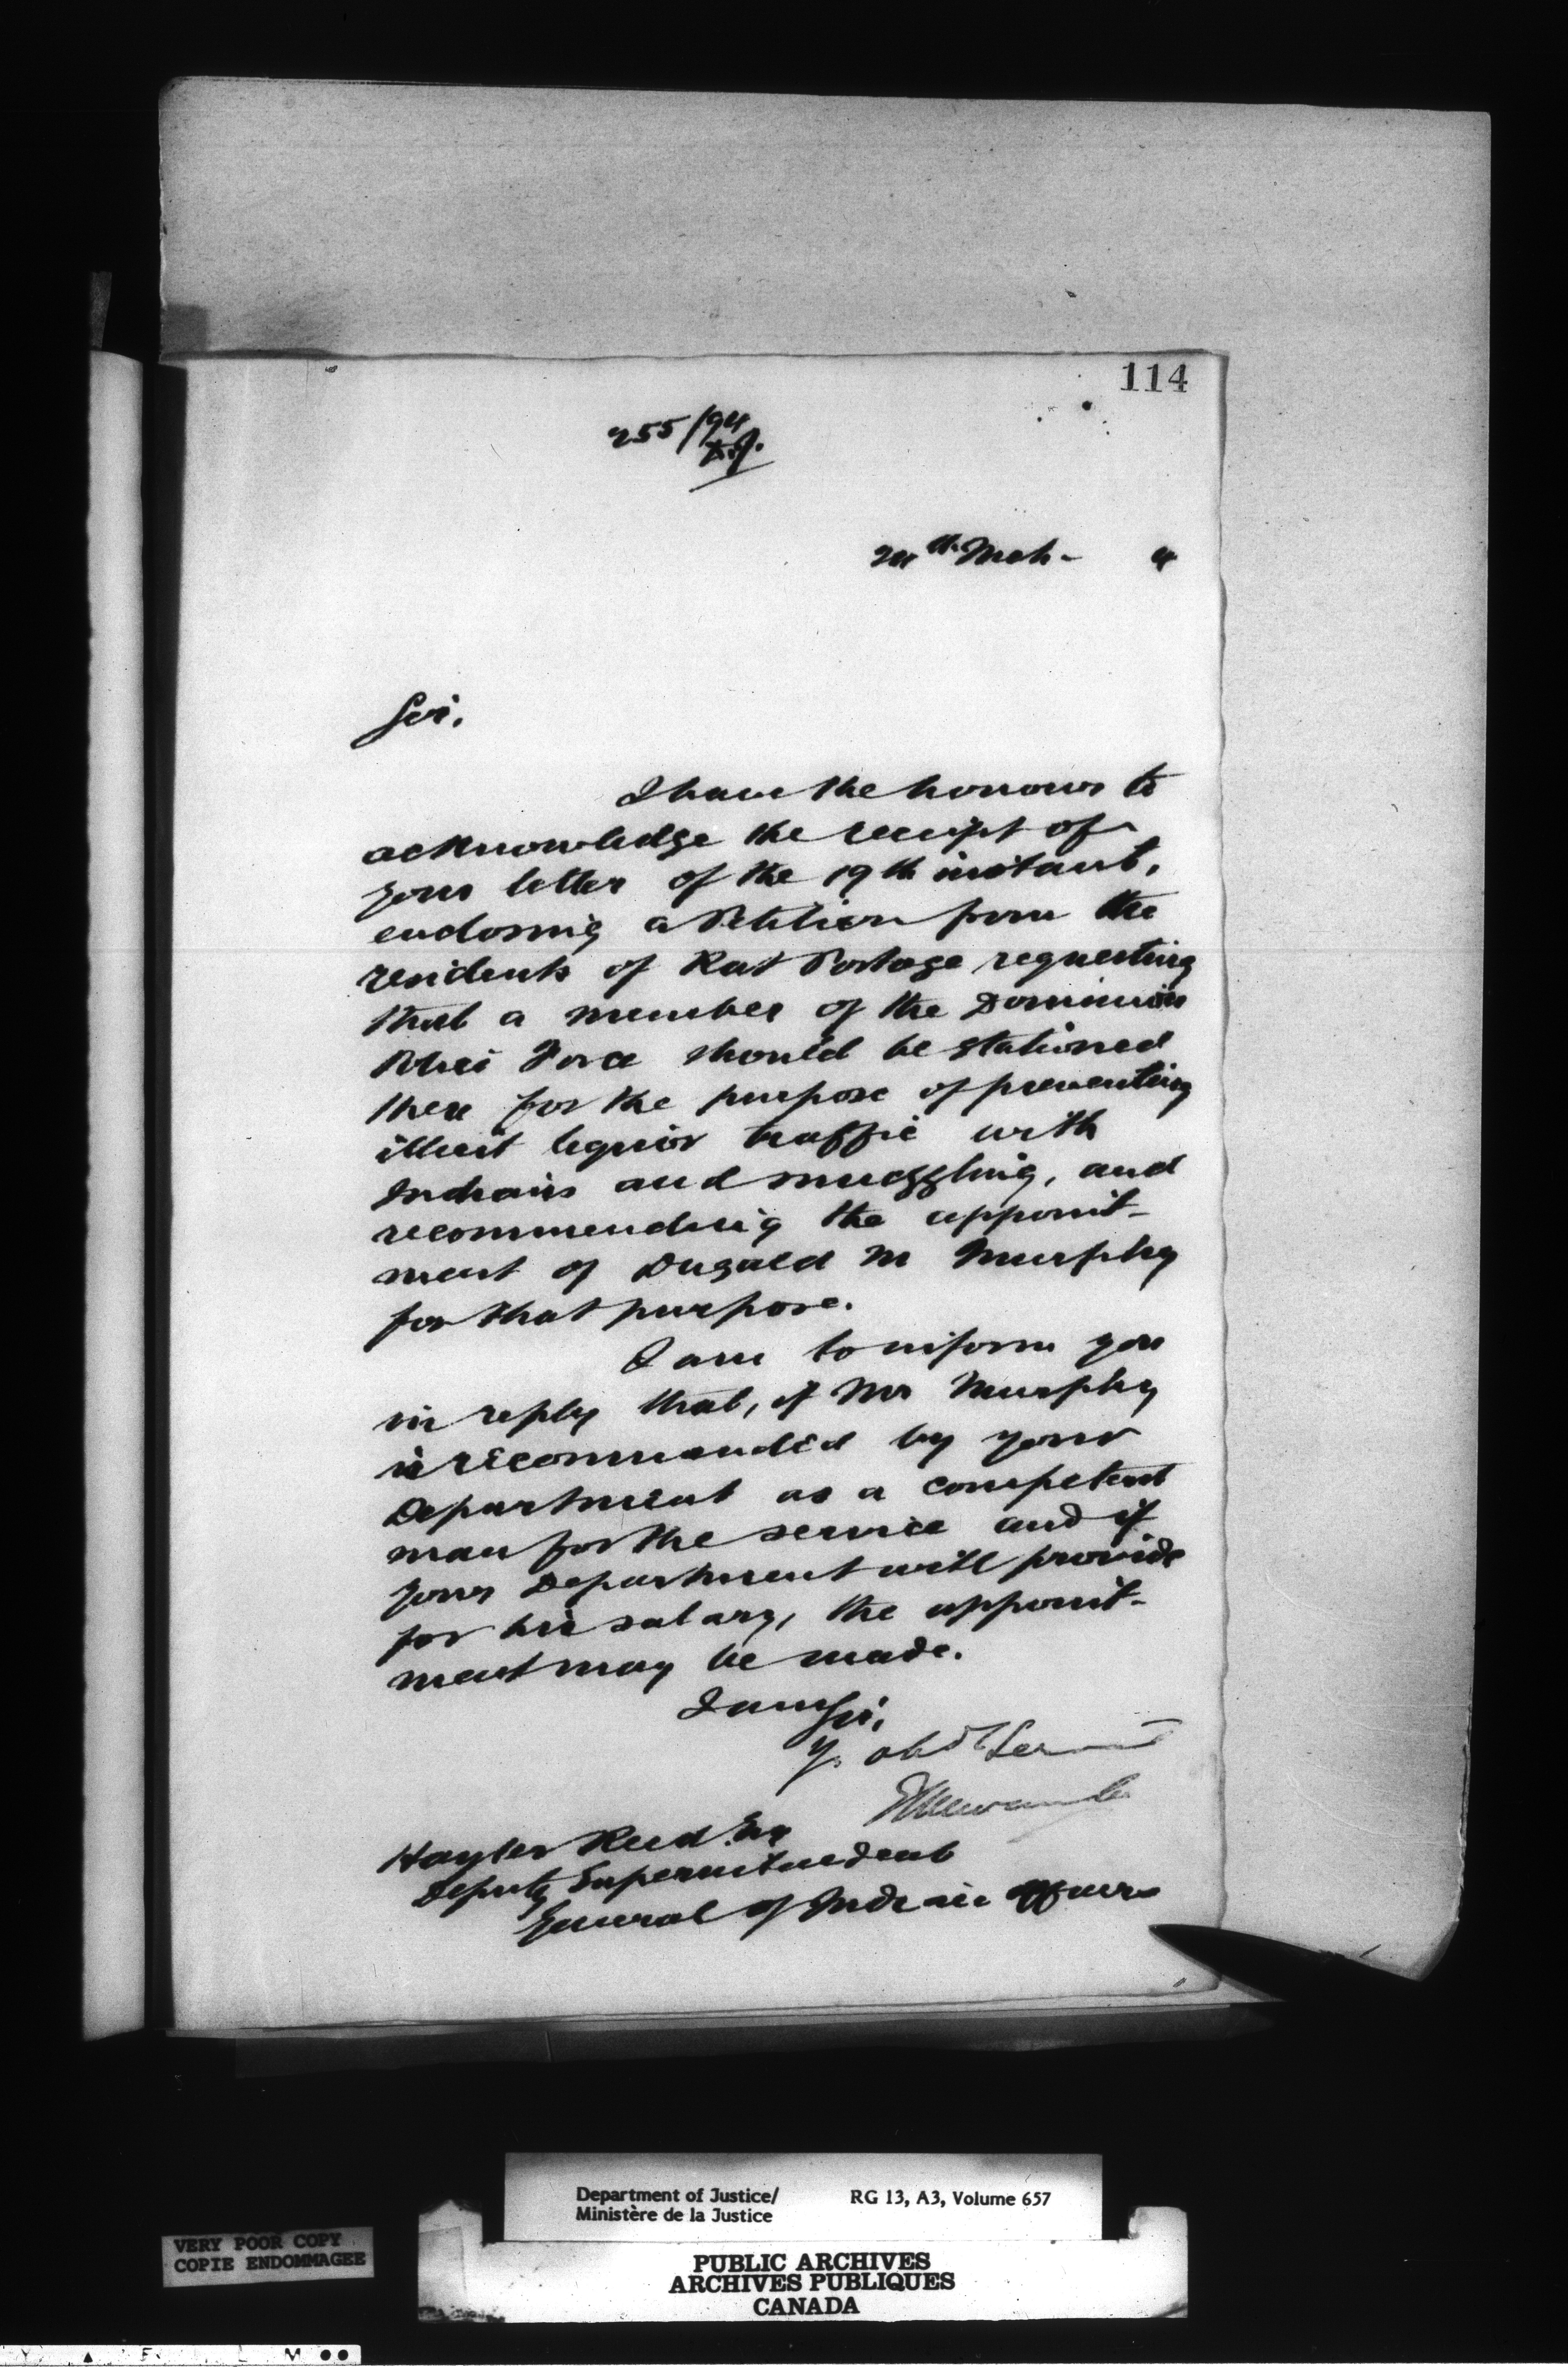 114
255/94
24th Mch- 4
Sir,
I have the honour to
acknowledge the receipt of
your letter of the 19th instant,
enclosing a Petition from the
residents of Rat Portage requesting
that a member of the Dominion
Police Force should be stationed
there for the purpose of preventing
illicit liquor traffic with
Indians and smuggling, and
recommending the appoint-
ment of Dugald M Murphy
for that purpose.
I am to inform you
in reply that, if Mr Murphy
is recommended by your
Department as a competent
man for the service and if
your Department will provide
for his salary, the appoint-
ment may be made.
I am Sir,
Y. obdt Servant
E L Newcombe
Hayter Reed Esq
Deputy Superintendent
General of Indian Affairs
Department of Justice/ RG 13, A3, Volume 657
Ministère de la Justice
VERY POOR COPY
COPIE ENDOMMAGEE
PUBLIC ARCHIVES
ARCHIVES PUBLIQUES
CANADA